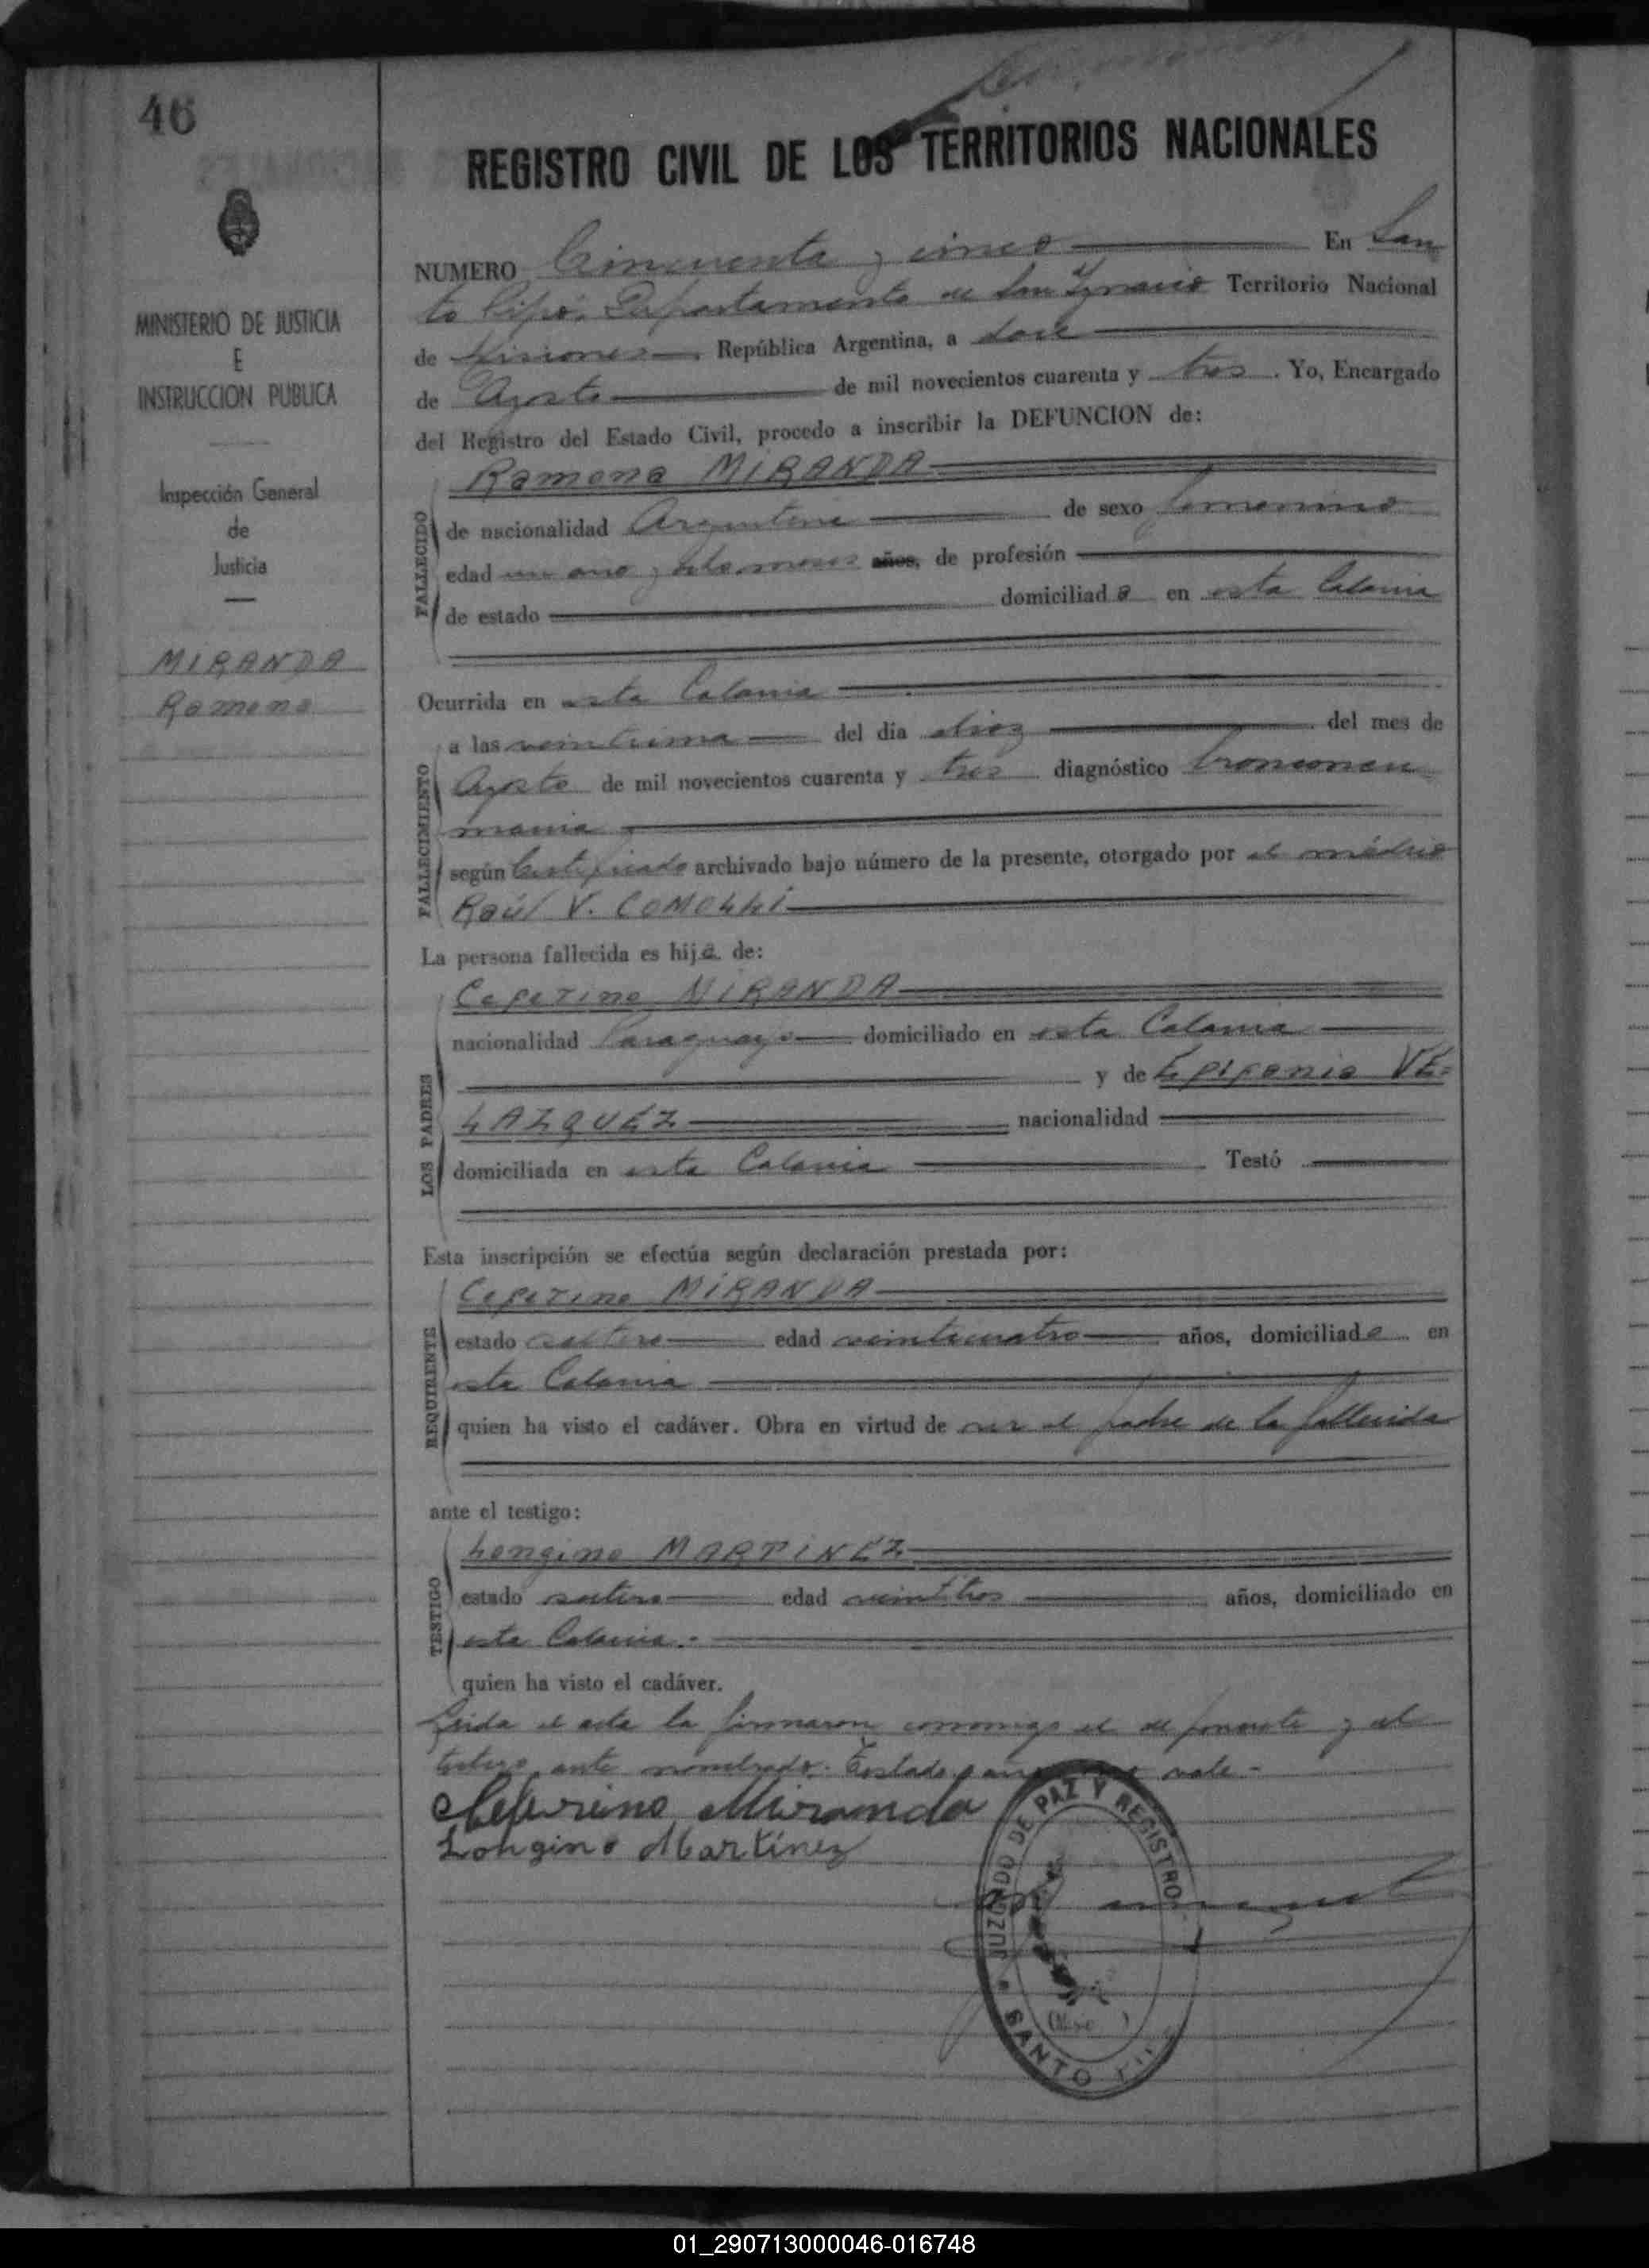 46
REGISTRO CIVIL DE LOS TERRITORIOS NACIONALES
MINISTERIO DE JUSTICIA
E
INSTRUCCION PUBLICA
Inspección General
de
Justicia
MIRANDA
Ramona
NUMERO Cincuenta y cinco En San
to Pipó, Departamento de San Ignacio Territorio Nacional
de Misiones República Argentina, a doce
de Agosto de mil novecientos cuarenta y tres . Yo, Encargado
del Registro del Estado Civil, procedo a inscribir la DEFUNCION de:
FALLECIDO
Ramona MIRANDA
de nacionalidad Argentina de sexo femenino
edad un ano y meses años, de profesión
de estado domiciliada en esta Colonia
FALLECIMIENTO
Ocurrida en esta Colonia
a las del día diez del mes de
Agosto de mil novecientos cuarenta y tres diagnóstico bronconeu
monia
según Certificado archivado bajo número de la presente, otorgado por el médico
Raúl V. COMOLLI
La persona fallecida es hija de:
LOS PADRES
Ceferino MIRANDA
nacionalidad Paraguayo domiciliado en esta Colonia
y de Epifania VE=
LAZQUEZ nacionalidad
domiciliada en esta Colonia Testó
Esta inscripción se efectúa según declaración prestada por:
REQUIRENTE
Ceferino MIRANDA
estado soltero edad veinticuatro años, domiciliado en
esta Colonia
quien ha visto el cadáver. Obra en virtud de ser el padre de la fallecida
ante el testigo:
TESTIGO
Longino MARTINEZ
estado soltero edad veintitres años, domiciliado en
esta Colonia.-
quien ha visto el cadáver.
Leida el acta la firmaron conmigo el deponente y el
testigo ante nombrado. Testado vale.-
Ceferino Miranda
Longino Martínez
JUZGADO DE PAZ Y REGISTRO
SANTO
01_290713000046-016748